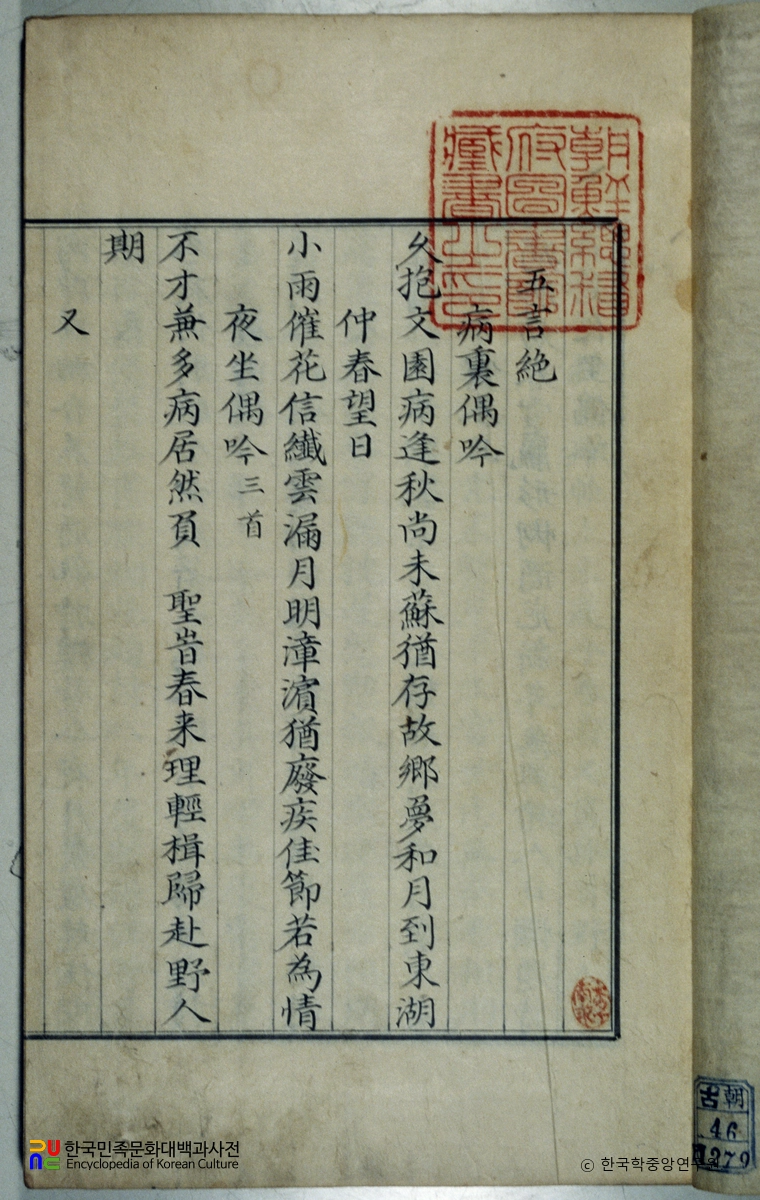 朝鮮總督
府圖書館
藏書之印
五言絶
病裏偶吟
久抱文園病逢秋尚未蘇猶存故鄉夢和月到東湖
仲春望日
小雨催花信纖雲漏月明漳濱猶癈疾佳節若為情
夜坐偶吟三首
不才兼多病居然負 聖旹春来理輕楫歸赴野人
期
又
朝
古
46
한국민족문화대백과사전
Encyclopedia of Korean Culture
© 한국학중앙연구원